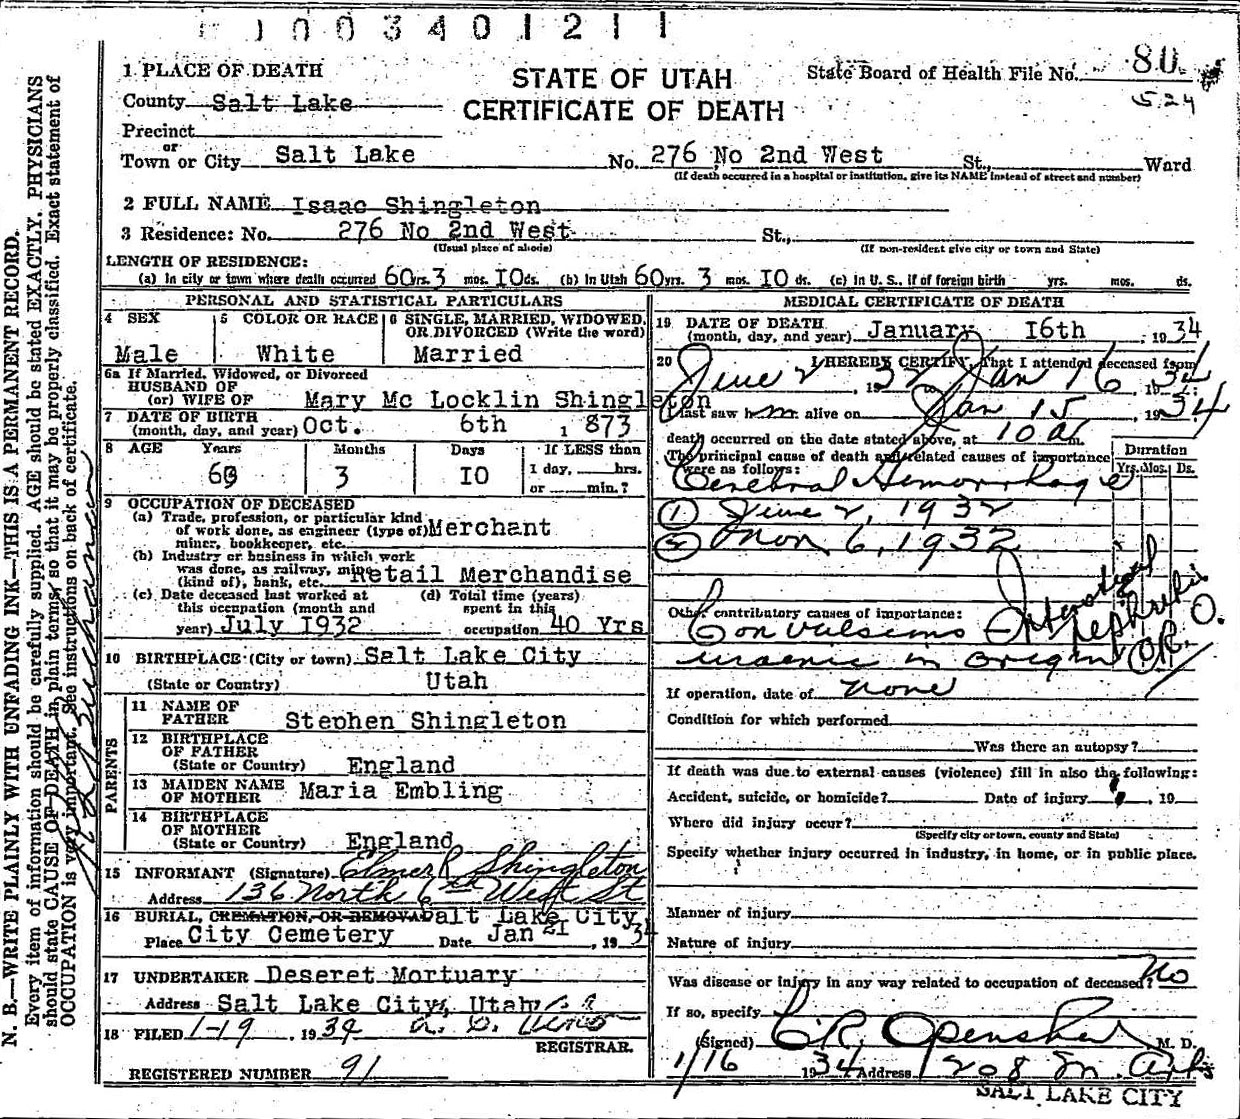 1003401211
1 PLACE OF DEATH
STATE OF UTAH
CERTIFICATE OF DEATH
State Board of Health File No. 80
524
County Salt Lake
Precinct
or
Town or City Salt Lake No. 276 No 2nd West St., Ward
(If death occurred in a hospital or institution, give its NAME instead of street and number)
2 FULL NAME Isaac Shingleton
3 Residence: No. 276 No 2nd West St.,
(Usual place of abode) (If non-resident give city or town and State)
LENGTH OF RESIDENCE:
(a) In city or town where death occurred 60 yrs. 3 mos. 10 ds. (b) In Utah 60 yrs. 3 mos. 10 ds. (c) In U. S., if of foreign birth yrs. mos. ds.
PERSONAL AND STATISTICAL PARTICULARS
4 SEX 5 COLOR OR RACE 6 SINGLE, MARRIED, WIDOWED, OR DIVORCED (Write the word)
Male White Married
6a If Married, Widowed, or Divorced
HUSBAND OF
(or) WIFE OF Mary Mc Locklin Shingleton
7 DATE OF BIRTH
(month, day, and year) Oct. 6th 1873
8 AGE Years Months Days If LESS than
1 day, hrs.
60 3 10 or min.?
9 OCCUPATION OF DECEASED
(a) Trade, profession, or particular kind
of work done, as engineer (type of) Merchant
miner, bookkeeper, etc.
(b) Industry or business in which work
was done, as railway, mine
(kind of), bank, etc. Retail Merchandise
(c) Date deceased last worked at (d) Total time (years)
this occupation (month and spent in this
year) July 1932 occupation 40 Yrs
10 BIRTHPLACE (City or town) Salt Lake City
(State or Country) Utah
PARENTS
11 NAME OF
FATHER Stephen Shingleton
12 BIRTHPLACE
OF FATHER
(State or Country) England
13 MAIDEN NAME
OF MOTHER Maria Embling
14 BIRTHPLACE
OF MOTHER
(State or Country) England
15 INFORMANT (Signature) Elmer R Shingleton
Address 136 North 6th West St
16 BURIAL, CREMATION, OR REMOVAL Salt Lake City,
Place City Cemetery Date Jan 21, 1934
17 UNDERTAKER Deseret Mortuary
Address Salt Lake City, Utah
18 FILED 1-19, 1934
REGISTRAR.
REGISTERED NUMBER 91
MEDICAL CERTIFICATE OF DEATH
19 DATE OF DEATH
(month, day, and year) January 16th, 1934
20 I HEREBY CERTIFY, That I attended deceased from
June 2, 1932 to Jan 16 1934
I last saw him alive on Jan 15, 1934
death occurred on the date stated above, at 10 a m.
The principal cause of death and related causes of importance
were as follows:
Duration
Yrs. Mos. Ds.
Cerebral Hemorrhage
(1) June 2, 1932
(2) Nov 6, 1932
Other contributory causes of importance: Interstitial
Convulsions nephritis
uraemic in origin C.R.O.
If operation, date of none
Condition for which performed
Was there an autopsy?
If death was due to external causes (violence) fill in also the following:
Accident, suicide, or homicide? Date of injury , 19
Where did injury occur?
(Specify city or town, county and State)
Specify whether injury occurred in industry, in home, or in public place.
Manner of injury
Nature of injury
Was disease or injury in any way related to occupation of deceased? No
If so, specify
(Signed) C. R. Openshaw M. D.
1/16 1934 Address 208 Med. Arts
SALT LAKE CITY
N. B.—WRITE PLAINLY WITH UNFADING INK—THIS IS A PERMANENT RECORD.
Every item of information should be carefully supplied. AGE should be stated EXACTLY. PHYSICIANS
should state CAUSE OF DEATH in plain terms, so that it may be properly classified. Exact statement of
OCCUPATION is very important. See instructions on back of certificate.